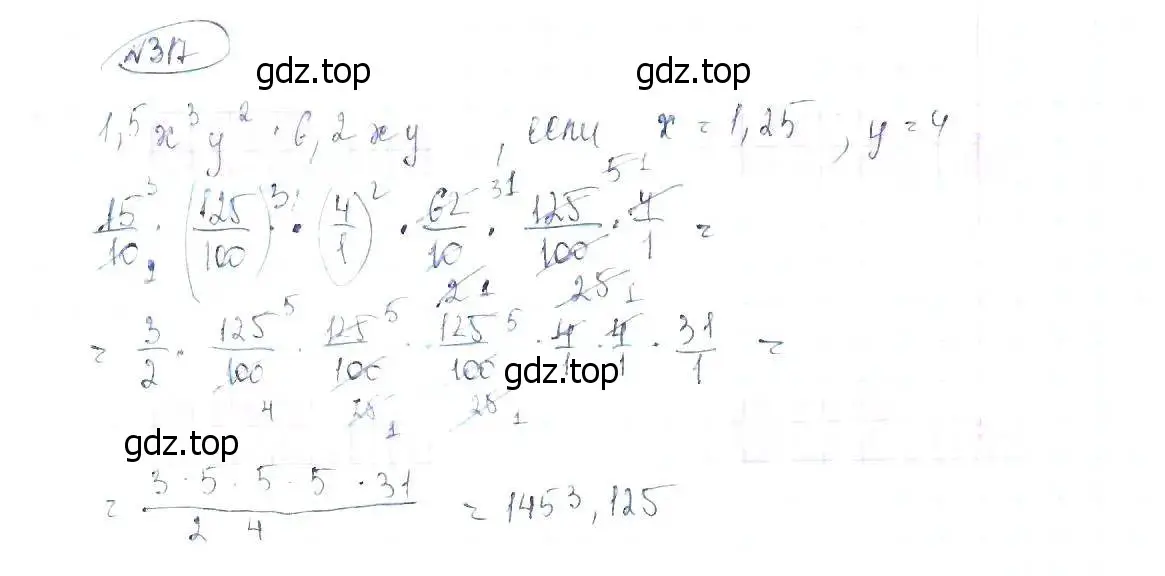 №317
gdz.top gdz.top
1,5x³y² · 6,2xy, если x = 1,25, y = 4
15/10 · (125/100)³ · (4/1)² · 62/10 · 125/100 · 4/1 =
= 3/2 · 125/100 · 125/100 · 125/100 · 4/1 · 4/1 · 31/1 =
gdz.top
gdz.top
= 3 · 5 · 5 · 5 · 31 / 2 4 = 1453,125